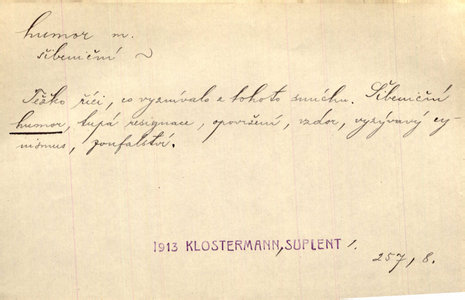 humor m.
šibeniční ~
Těžko říci, co vyznívalo z tohoto smíchu. Šibeniční
humor, tupá resignace, opovržení, vzdor, vyzývavý cy-
nismus, zoufalství.
1913 KLOSTERMANN, SUPLENT /.
257, 8.